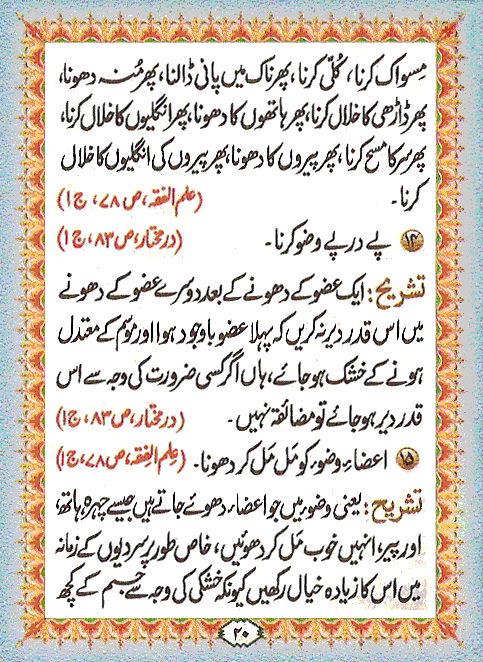 مِسواک کرنا، کُلّی کرنا، پھر ناک میں پانی ڈالنا، پھر مُنہ دھونا،
پھر ڈاڑھی کا خلال کرنا، پھر ہاتھوں کا دھونا، پھر انگلیوں کا خلال کرنا،
پھر سر کا مسح کرنا، پھر پیروں کا دھونا، پھر پیروں کی انگلیوں کا خلال
کرنا۔ (علم الفقہ، ص ۷۸، ج ۱)
۱۴ پے درپے وضو کرنا۔ (درمختار، ص ۸۳، ج ۱)
تشریح: ایک عضو کے دھونے کے بعد دوسرے عضو کے دھونے
میں اس قدر دیر نہ کریں کہ پہلا عضو باوجود ہوا اور موسم کے معتدل
ہونے کے خشک ہوجائے، ہاں اگر کسی ضرورت کی وجہ سے اس
قدر دیر ہوجائے تو مضائقہ نہیں۔ (درمختار، ص ۸۳، ج ۱)
۱۵ اعضاءِ وضوء کو مَل مَل کر دھونا۔ (عِلم الفِقہ، ص ۷۸، ج ۱)
تشریح: یعنی وضوء میں جو اعضاء دھوئے جاتے ہیں جیسے چہرہ، ہاتھ،
اور پیر، انہیں خوب مَل کر دھوئیں، خاص طور پر سردیوں کے زمانہ
میں اس کا زیادہ خیال رکھیں کیونکہ خشکی کی وجہ سے جسم کے کچھ
۲۰